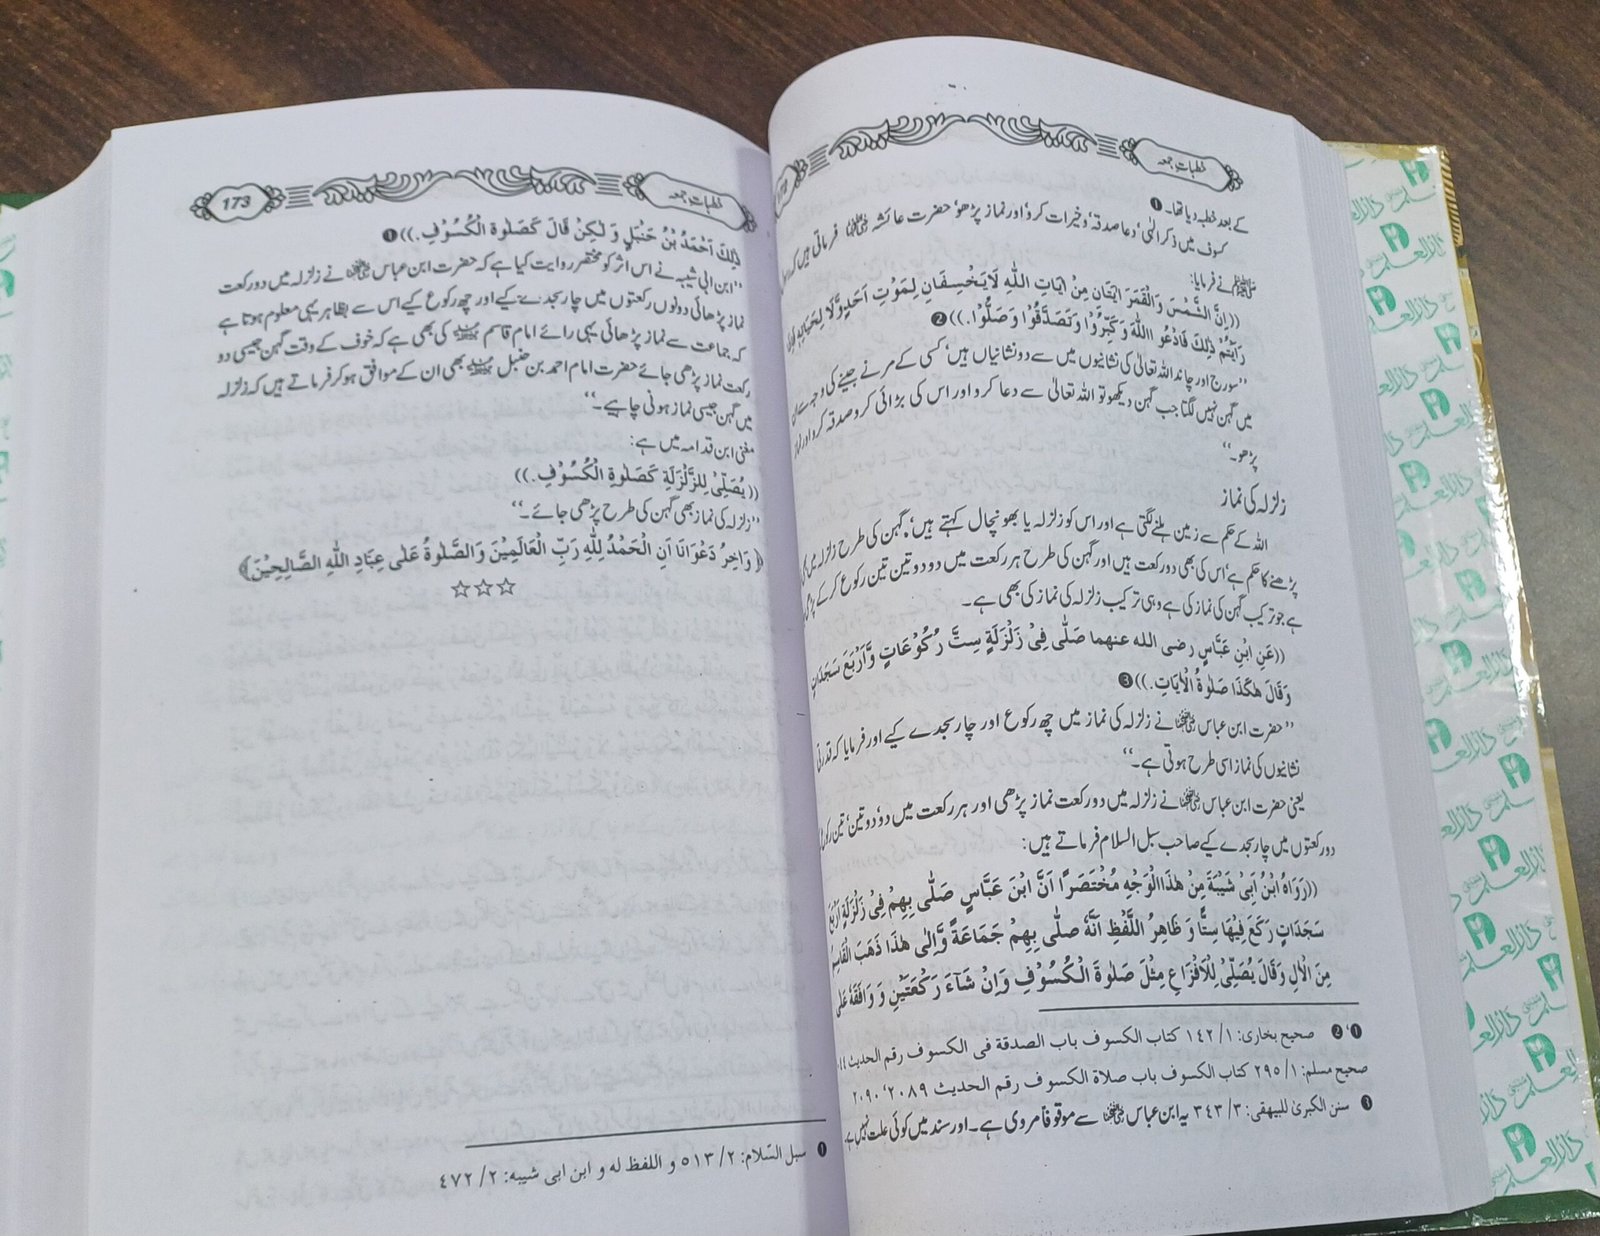 خطبات جمعہ
کے بعد خطبہ دیا تھا۔ ❶
کسوف میں ذکر الٰہی، دعا صدقہ، وخیرات کرو اور نماز پڑھو، حضرت عائشہ رضی اللہ عنہا فرماتی ہیں کہ
ﷺ نے فرمایا:
((اِنَّ الشَّمْسَ وَالْقَمَرَ ایٰتَانِ مِنْ ایَاتِ اللّٰہِ لَا یَخْسِفَانِ لِمَوْتِ اَحَدٍ وَّلَا لِحَیَاتِہٖ
رَاَیْتُمْ ذٰلِکَ فَادْعُو االلّٰہَ وَکَبِّرُوْا وَتَصَدَّقُوْا وَصَلُّوْا.)) ❷
”سورج اور چاند اللہ تعالیٰ کی نشانیوں میں سے دو نشانیاں ہیں، کسی کے مرنے جینے کی وجہ سے ان
میں گہن نہیں لگتا جب گہن دیکھو تو اللہ تعالیٰ سے دعا کرو اور اس کی بڑائی کرو صدقہ کرو اور نماز
پڑھو۔“
زلزلہ کی نماز
اللہ کے حکم سے زمین ہلنے لگتی ہے اور اس کو زلزلہ یا بھونچال کہتے ہیں، گہن کی طرح زلزلہ میں
پڑھنے کا حکم ہے، اس کی بھی دو رکعت ہیں اور گہن کی طرح ہر رکعت میں دو دو تین تین رکوع کر کے
ہے جو ترکیب گہن کی نماز کی ہے وہی ترکیب زلزلہ کی نماز کی بھی ہے۔
((عَنِ ابْنِ عَبَّاسٍ رضی اللہ عنہما صَلّٰی فِیْ زَلْزَلَۃٍ سِتَّ رُکُوْعَاتٍ وَّاَرْبَعَ سَجَدَاتٍ
وَقَالَ ھٰکَذَا صَلٰوۃُ الْاٰیَاتِ.)) ❸
”حضرت ابن عباس رضی اللہ عنہما نے زلزلہ کی نماز میں چھ رکوع اور چار سجدے کیے اور فرمایا کہ قدرتی
نشانیوں کی نماز اسی طرح ہوتی ہے۔“
یعنی حضرت ابن عباس رضی اللہ عنہما نے زلزلہ میں دو رکعت نماز پڑھی اور ہر رکعت میں دو دو تین، تین
دو رکعتوں میں چار سجدے کیے صاحب سبل السلام فرماتے ہیں:
((رَوَاہُ ابْنُ اَبِیْ شَیْبَۃَ مِنْ ھٰذَاالْوَجْہِ مُخْتَصَرًا اَنَّ ابْنَ عَبَّاسٍ صَلّٰی بِھِمْ فِیْ زَلْزَلَۃٍ اَرْبَعَ
سَجَدَاتٍ رَکَعَ فِیْھَا سِتًّا وَ ظَاھِرُ اللَّفْظِ اَنَّہٗ صَلّٰی بِھِمْ جَمَاعَۃً وَّاِلٰی ھٰذَا ذَھَبَ الْقَاسِمُ
مِنَ الْاٰلِ وَقَالَ یُصَلِّیْ لِلْاَفْزَاعِ مِثْلَ صَلٰوۃِ الْکُسُوْفِ وَاِنْ شَآءَ رَکْعَتَیْنِ وَ وَافَقَہٗ عَلٰی
❶،❷ صحیح بخاری: ١/ ١٤٢ کتاب الکسوف باب الصدقة فی الکسوف رقم الحدیث
صحیح مسلم: ١/ ٢٩٥ کتاب الکسوف باب صلاة الکسوف رقم الحدیث ٢٠٨٩، ٢٠٩٠
❸ سنن الکبریٰ للبیهقی: ٣/ ٣٤٣ یہ ابن عباس رضی اللہ عنہما سے موقوفا مروی ہے۔ اور سند میں کوئی علت نہیں ہے۔
خطبات جمعہ
173
ذٰلِکَ اَحْمَدُ بْنُ حَنْبَلٍ وَ لٰکِنْ قَالَ کَصَلٰوۃِ الْکُسُوْفِ.)) ❶
”ابن ابی شیبہ نے اس اثر کو مختصر روایت کیا ہے کہ حضرت ابن عباس رضی اللہ عنہما نے زلزلہ میں دو رکعت
نماز پڑھائی دونوں رکعتوں میں چار سجدے کیے اور چھ رکوع کیے اس سے بظاہر یہی معلوم ہوتا ہے
کہ جماعت سے نماز پڑھائی یہی رائے امام قاسم رحمہ اللہ کی بھی ہے کہ خوف کے وقت گہن جیسی دو
رکعت نماز پڑھی جائے حضرت امام احمد بن حنبل رحمہ اللہ بھی ان کے موافق ہو کر فرماتے ہیں کہ زلزلہ
میں گہن جیسی نماز ہونی چاہیے۔“
مغنی ابن قدامہ میں ہے:
((یُصَلِّیْ لِلزَّلْزَلَۃِ کَصَلٰوۃِ الْکُسُوْفِ.))
”زلزلہ کی نماز بھی گہن کی طرح پڑھی جائے۔“
﴿وَاٰخِرُ دَعْوَانَا اَنِ الْحَمْدُ لِلّٰہِ رَبِّ الْعَالَمِیْنَ وَالصَّلٰوۃُ عَلٰی عِبَادِ اللّٰہِ الصَّالِحِیْنَ﴾
☆☆☆
❶ سبل السّلام: ٢/ ٥١٣ و اللفظ له و ابن ابی شیبه: ٢/ ٤٧٢